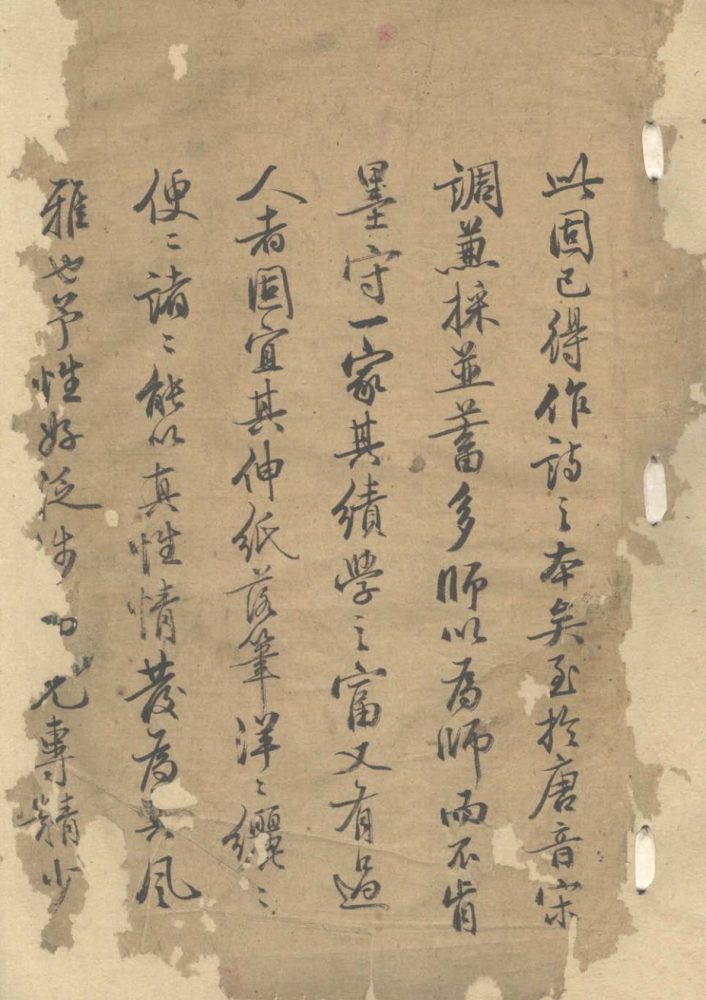 此固已得作詩之本矣至於唐音宋
調兼採並蓄多師以為師而不肯
墨守一家其績學之富又有過
人者固宜其伸紙落筆洋〻纚〻
便〻諸〻能以真性情發為真風
雅也予性好泛涉 尤專精少